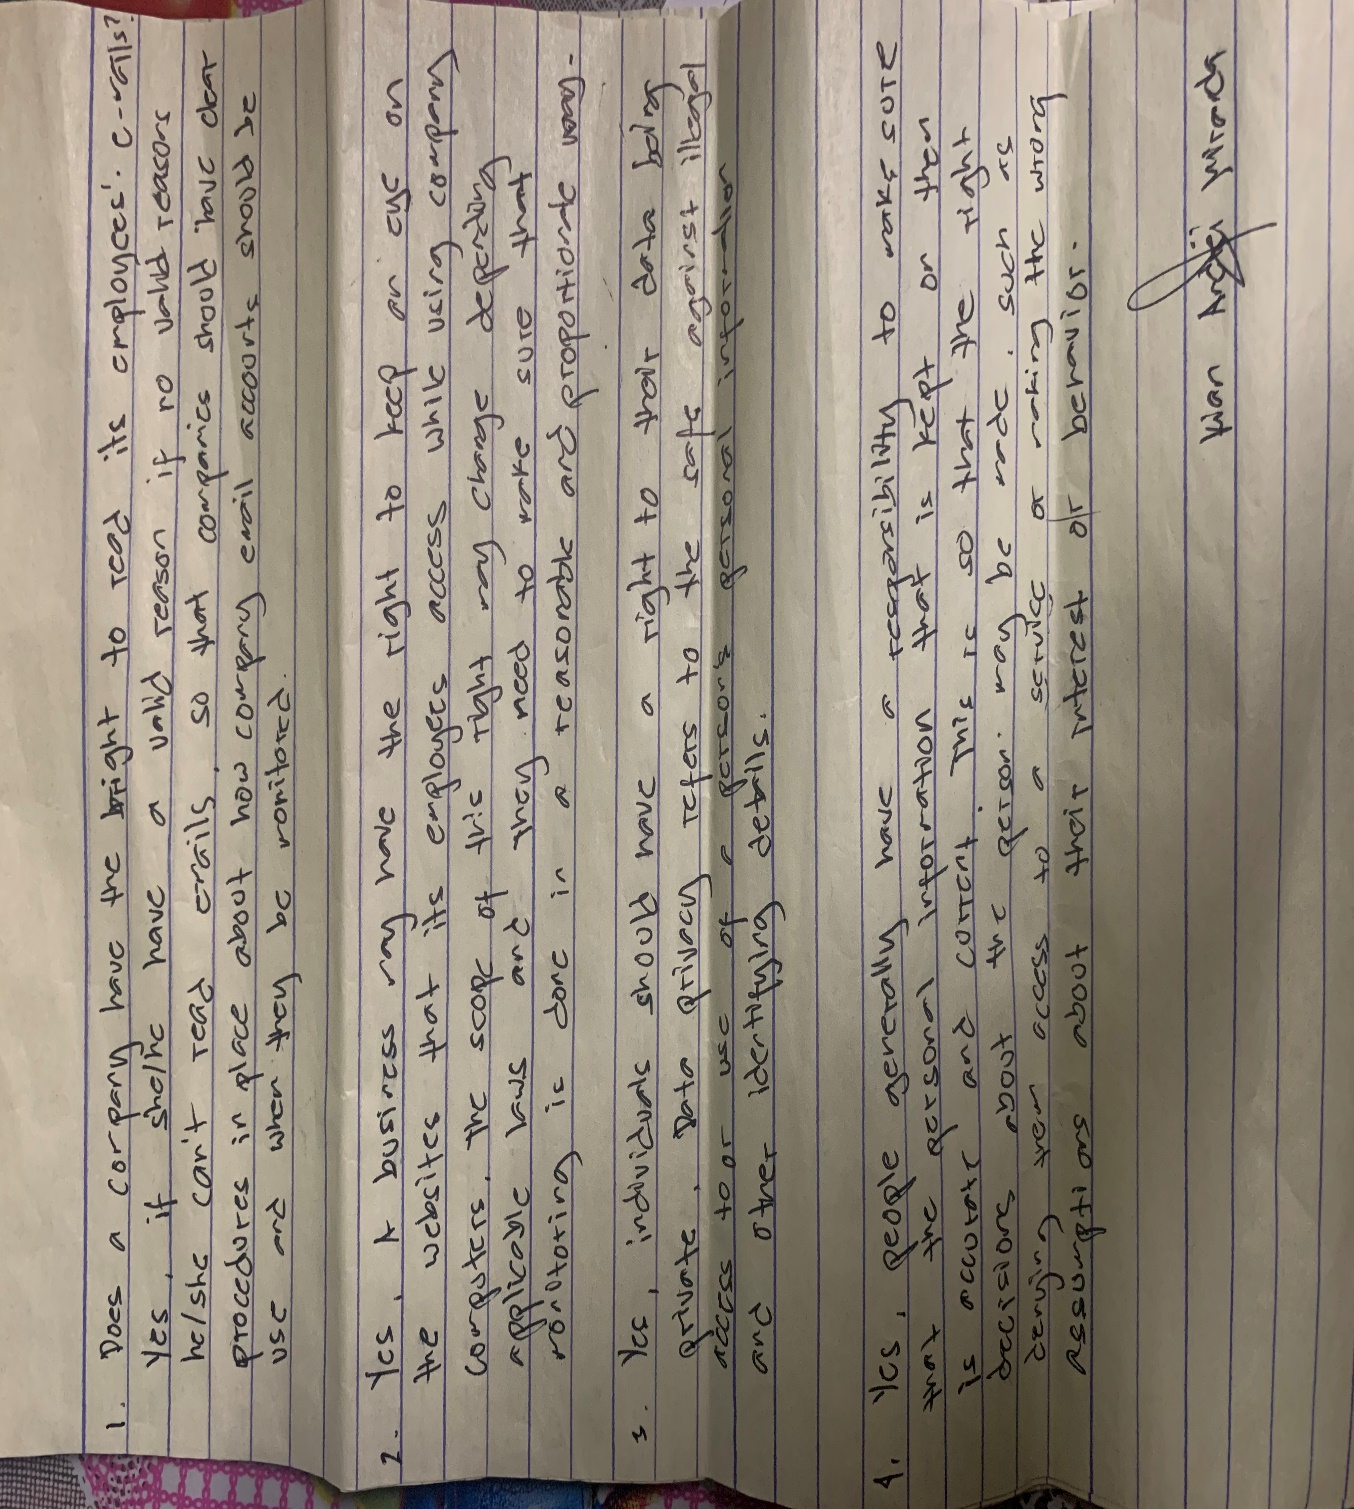 1. Does a company have the right to read its employees'. e-mails?
Yes, if she/he have a valid reason if no valid reasons
he/she can't read emails, so that companies should have clear
procedures in place about how company email accounts should be
use and when they be monitored.
2. Yes, A business may have the right to keep an eye on
the websites that its employees access while using company
computers, the scope of this right may change depending
applicable laws and they need to make sure that
monitoring is done in a reasonable and proportionate way.
3. Yes, individuals should have a right to their data being
private. Data privacy refers to the safe against illegal
access to or use of a person's personal information
and other identifying details.
4. Yes, people generally have a responsibility to make sure
that the personal information that is kept on them
is accurate and current. This is so that the right
decisions about the person may be made. such as
denying them access to a service or making the wrong
assumptions about their interest or behavior.
Kian Angeji Miranda